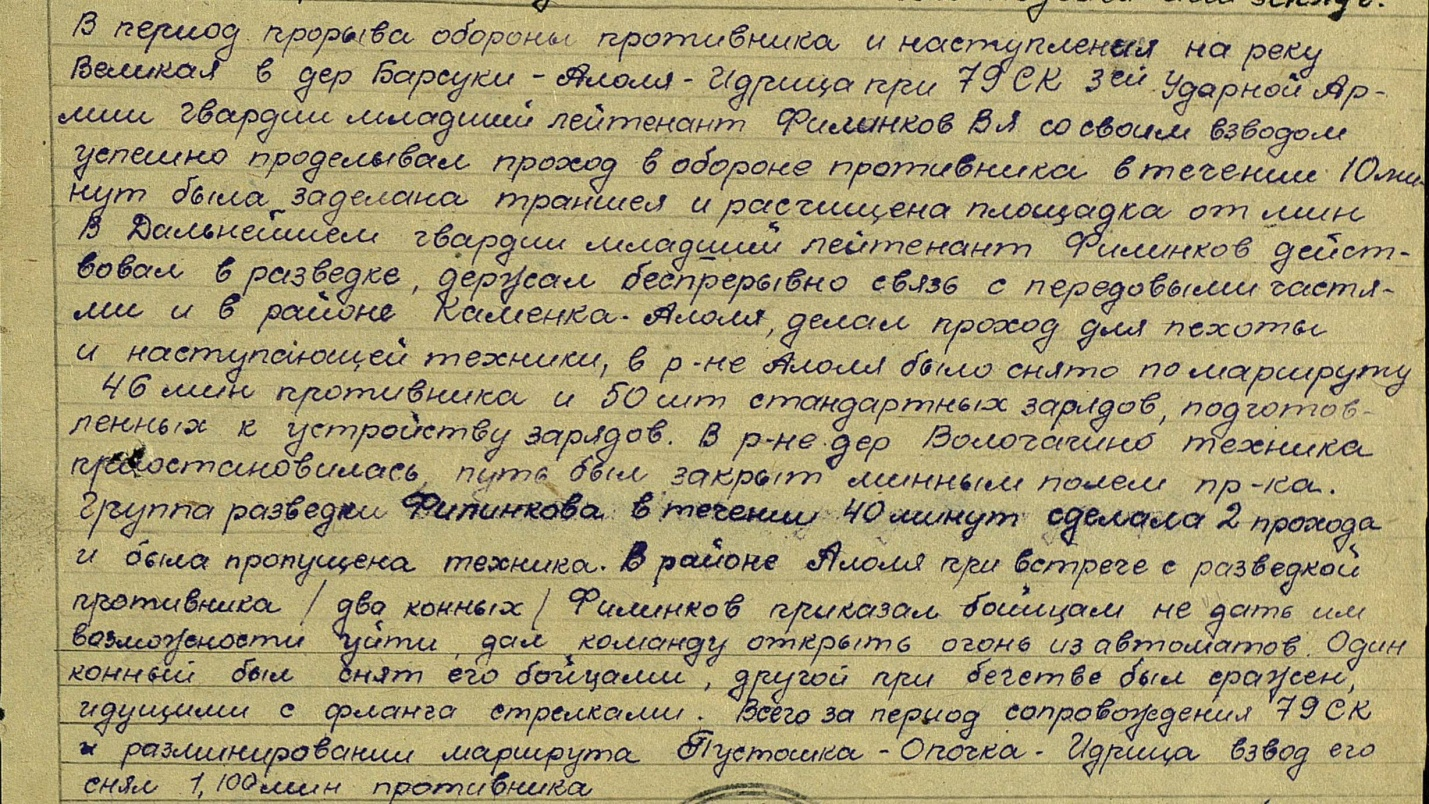 В период прорыва обороны противника и наступления на реку
Великая в дер Барсуки - Алоля - Идрица при 79 СК 3ей Ударной Ар-
мии гвардии младший лейтенант Филинков В Я со своим взводом
успешно проделывал проход в обороне противника в течении 10 ми-
нут была заделана траншея и расчищена площадка от мин
В Дальнейшем гвардии младший лейтенант Филинков дейст-
вовал в разведке, держал беспрерывно связь с передовыми частя-
ми и в районе Каменка - Алоля, делал проход для пехоты
и наступающей техники, в р-не Алоля было снято по маршруту
46 мин противника и 50 шт стандартных зарядов, подготов-
ленных к устройству зарядов. В р-не дер Вологачино техника
приостановилась, путь был закрыт минным полем пр-ка.
Группа разведки Филинкова в течении 40 минут сделала 2 прохода
и была пропущена техника. В районе Алоля при встрече с разведкой
противника / два конных / Филинков приказал бойцам не дать им
возможности уйти, дал команду открыть огонь из автоматов. Один
конный был снят его бойцами, другой при бегстве был сражен,
идущими с фланга стрелками. Всего за период сопровождения 79 СК
и разминировании маршрута Пустошка - Опочка - Идрица взвод его
снял 1,100 мин противника